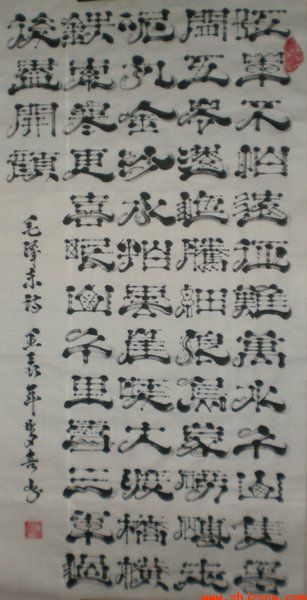 紅軍不怕遠征難萬水千山隻等
閒五岺逶迤騰細浪烏蒙磅礴走
泥丸金沙水拍雲崖暖大渡橋橫
鉄索寒更喜岷山千里雪三軍過
後盡開顏
毛泽东詩 年 书